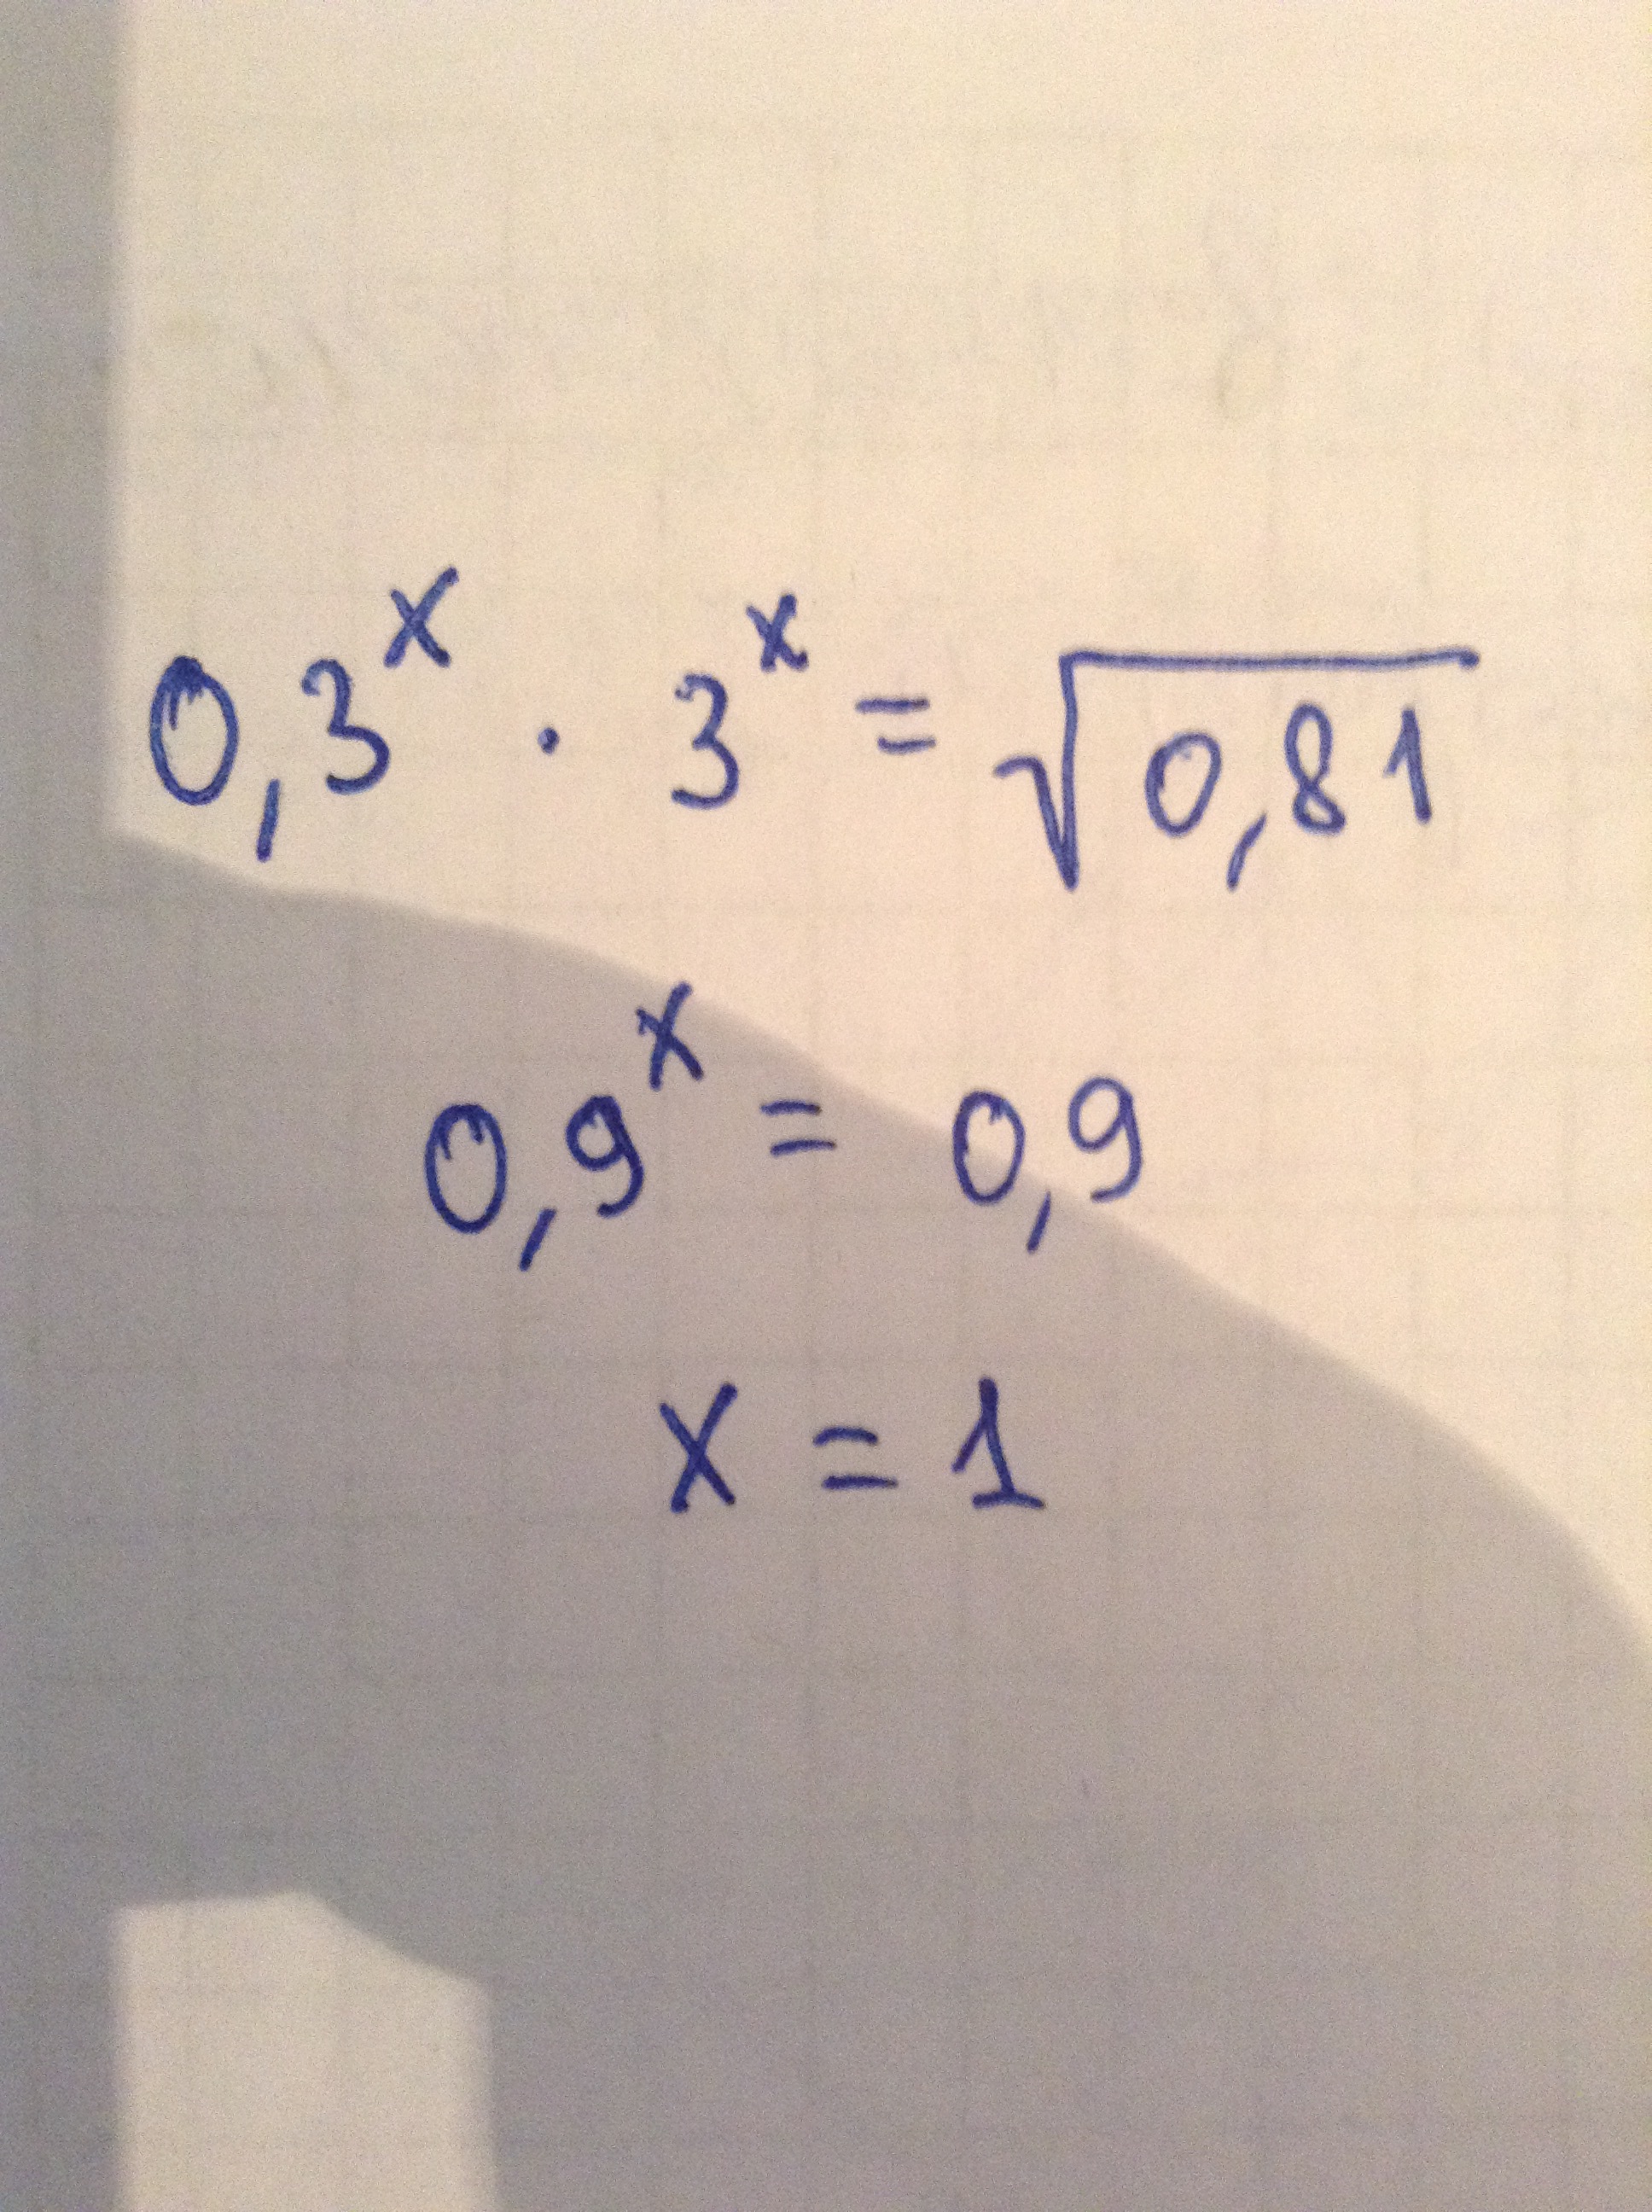 0,3^x · 3^x = √0,81
0,9^x = 0,9
x = 1